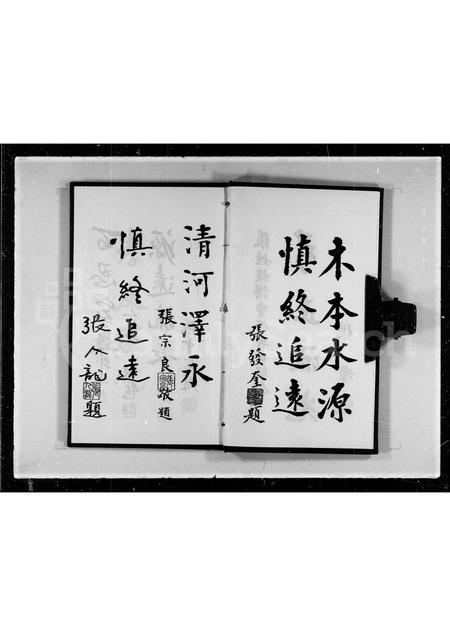 木本水源
慎終追遠
張發奎題
清河澤永
張宗良敬題
慎終追遠
張人龍題